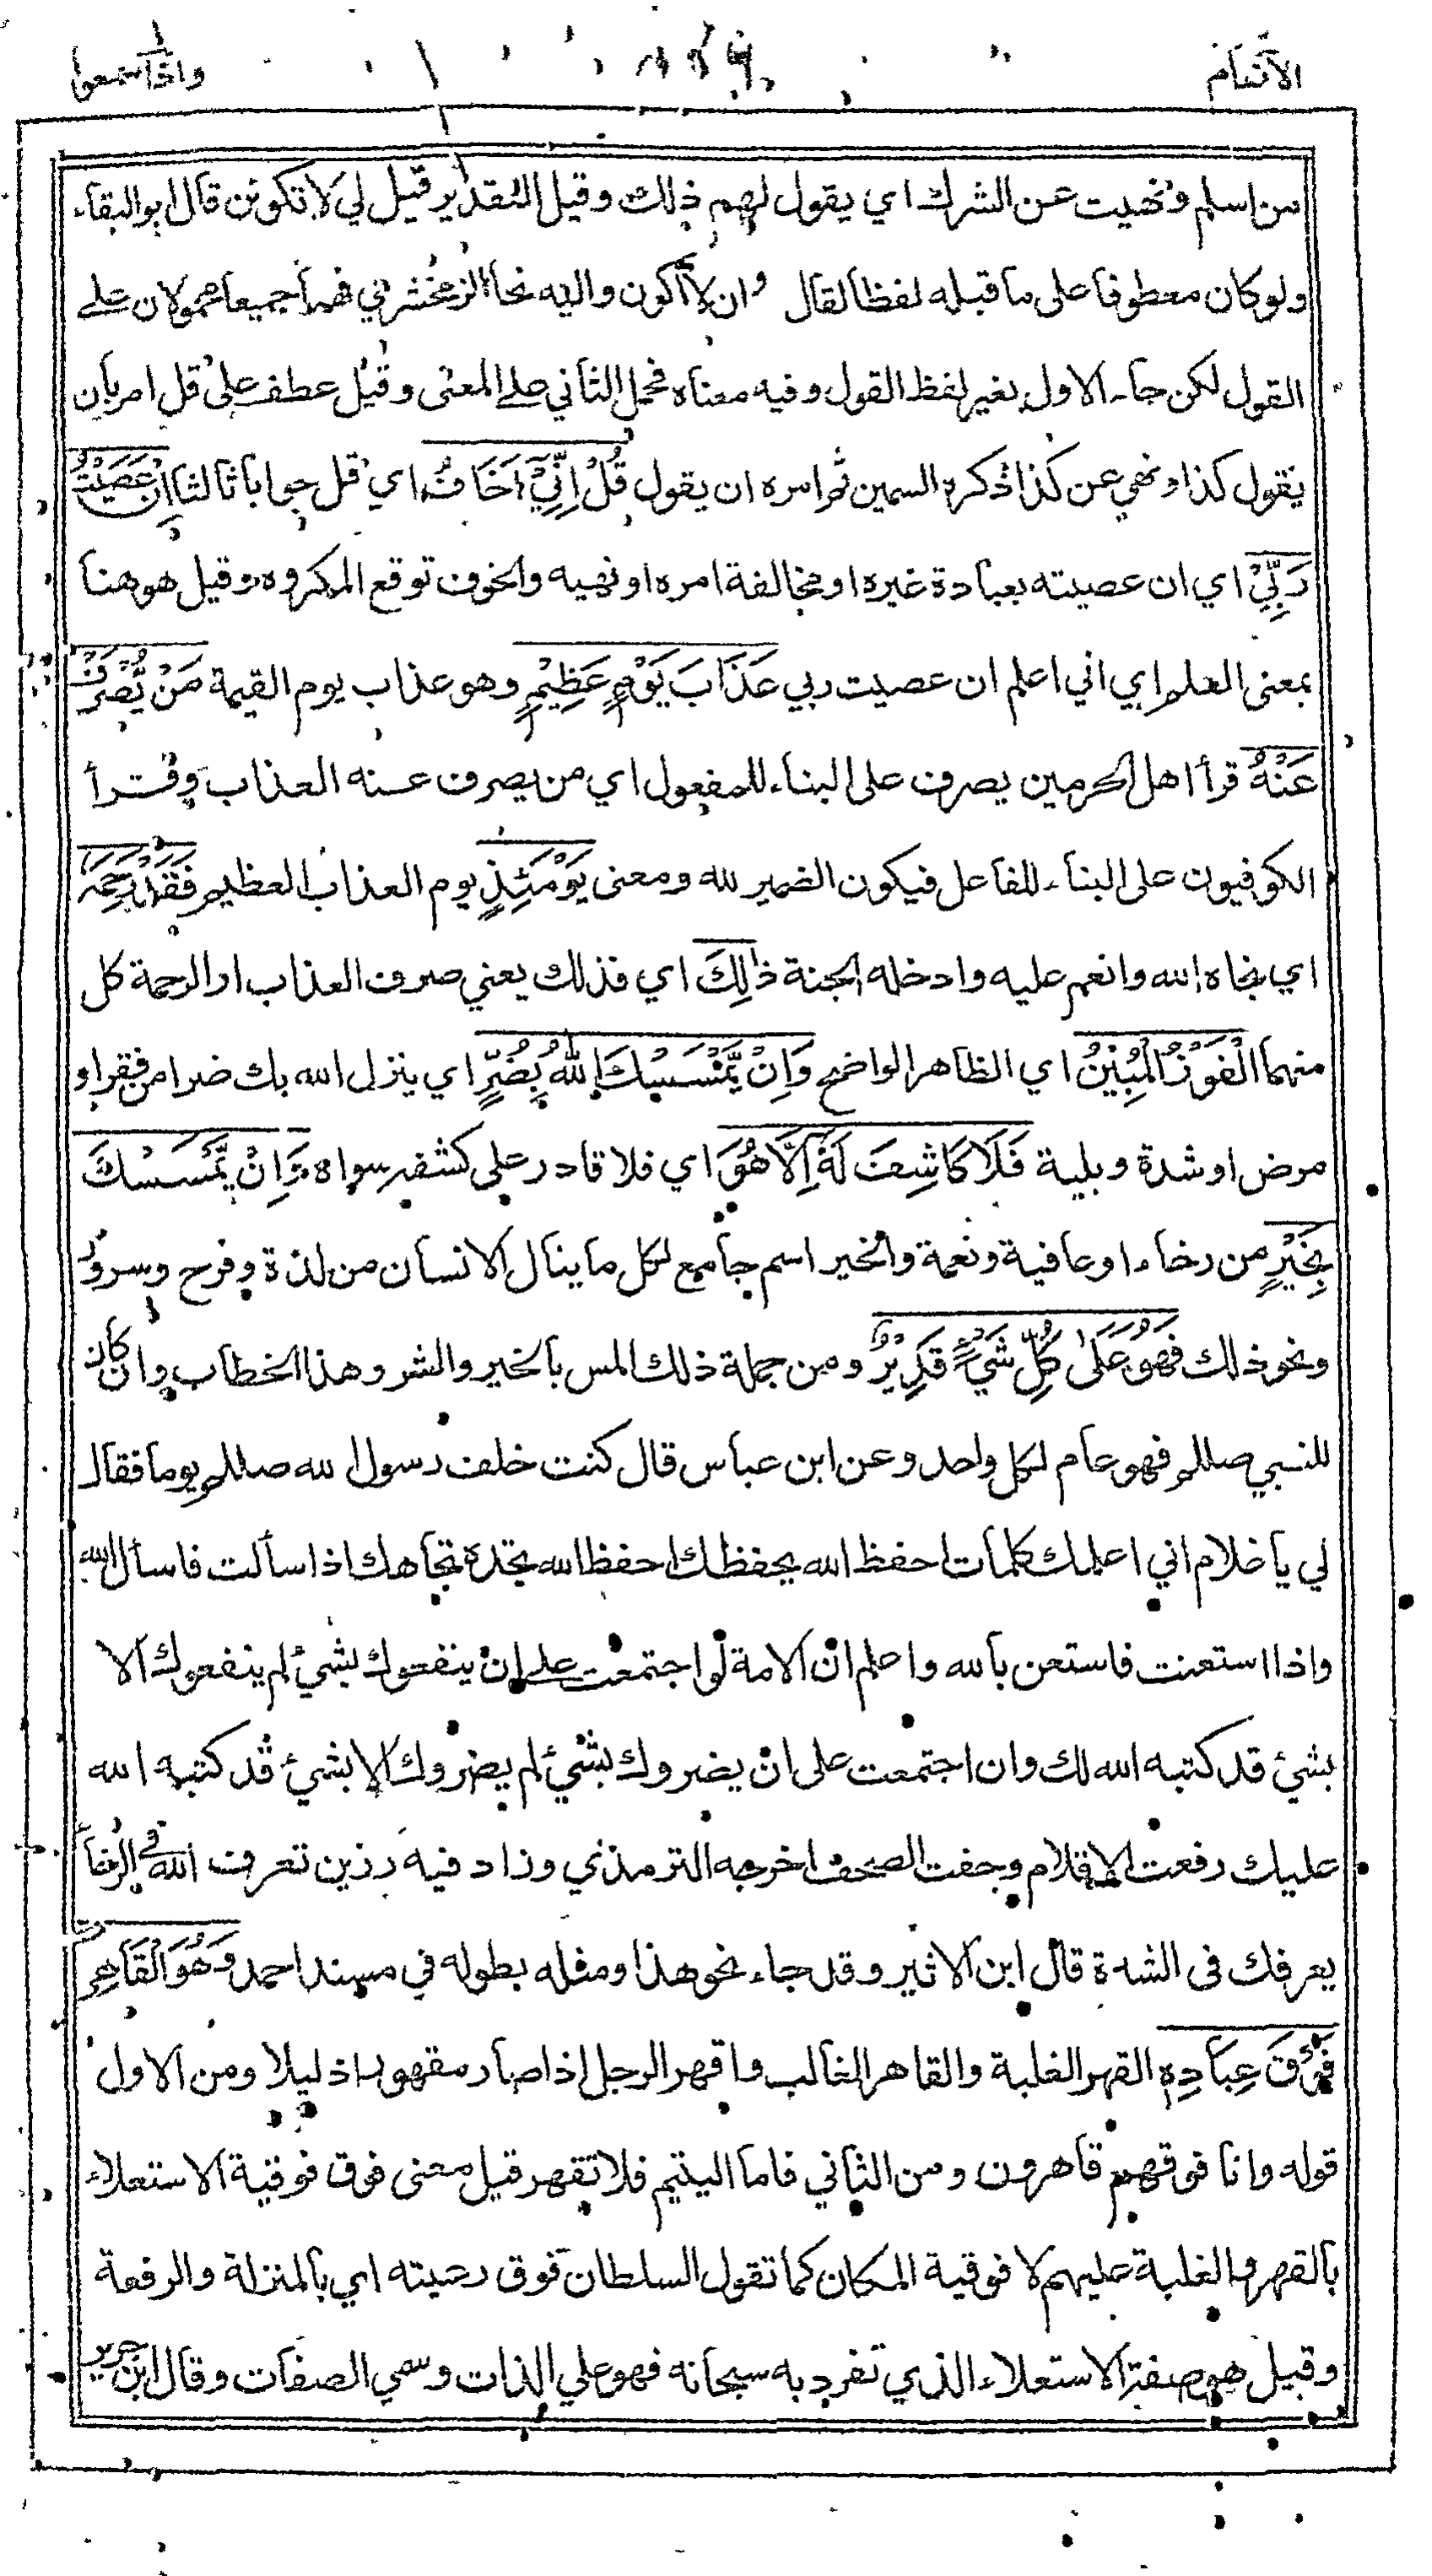 الانعام واذا سمعوا
من اسلم ونهيت عن الشرك اي يقول لهم ذلك وقيل التقدير قيل لي لا تكونن قال ابو البقاء
ولو كان معطوفا على ما قبله لفظا لقال وان لا اكون واليه نحا الزمخشري فهما جميعا محمولان على
القول لكن جاء الاول بغير لفظ القول وفيه معناه فحمل الثاني على المعنى وقيل عطف على قل امر بان
يقول كذا ونهي عن كذا ذكره السمين ثم امره ان يقول قُلْ اِنِّيْ اَخَافُ اي قل جوابا ثالثا اِنْ عَصَيْتُ
رَبِّيْ اي ان عصيته بعبادة غيره او مخالفة امره او نهيه والخوف توقع المكروه وقيل هو هنا
بمعنى العلم اي اني اعلم ان عصيت ربي عَذَابَ يَوْمٍ عَظِيْمٍ وهو عذاب يوم القيمة مَنْ يُّصْرَفْ
عَنْهُ قرأ اهل الحرمين يصرف على البناء للمفعول اي من يصرف عنه العذاب وقرأ
الكوفيون على البناء للفاعل فيكون الضمير لله ومعنى يَوْمَئِذٍ يوم العذاب العظيم فَقَدْ رَحِمَهُ
اي نجاه الله وانعم عليه وادخله الجنة ذٰلِكَ اي فذلك يعني صرف العذاب او الرحمة كل
منهما الْفَوْزُ الْمُبِيْنُ اي الظاهر الواضح وَاِنْ يَّمْسَسْكَ اللهُ بِضُرٍّ اي ينزل الله بك ضرا من فقر او
مرض او شدة وبلية فَلَا كَاشِفَ لَهٗ اِلَّا هُوَ اي فلا قادر على كشفه سواه وَاِنْ يَّمْسَسْكَ
بِخَيْرٍ من رخاء او عافية ونعمة والخير اسم جامع لكل ما ينال الانسان من لذة وفرح وسرور
ونحو ذلك فهو عَلٰى كُلِّ شَيْءٍ قَدِيْرٌ ومن جملة ذلك المس بالخير والشر وهذا الخطاب وان كان
للنبي صللم فهو عام لكل واحد وعن ابن عباس قال كنت خلف رسول الله صللم يوما فقال
لي يا غلام اني اعلمك كلمات احفظ الله يحفظك احفظ الله تجده تجاهك اذا سألت فاسأل الله
واذا استعنت فاستعن بالله واعلم ان الامة لو اجتمعت على ان ينفعوك بشيء لم ينفعوك الا
بشيء قد كتبه الله لك وان اجتمعت على ان يضروك بشيء لم يضروك الا بشيء قد كتبه الله
عليك رفعت الاقلام وجفت الصحف اخرجه الترمذي وزاد فيه رزين تعرف الى الله في الرخاء
يعرفك في الشدة قال ابن الاثير وقد جاء نحو هذا ومثله بطوله في مسند احمد وَهُوَ الْقَاهِرُ
فَوْقَ عِبَادِهٖ القهر الغلبة والقاهر الغالب واقهر الرجل اذا صار مقهورا ذليلا ومن الاول
قوله وانا فوقهم قاهرون ومن الثاني فاما اليتيم فلا تقهر قيل معنى فوق فوقية الاستعلاء
بالقهر والغلبة عليهم لا فوقية المكان كما تقول السلطان فوق رعيته اي بالمنزلة والرفعة
وقيل هو صفة الاستعلاء الذي تفرد به سبحانه فهو علي الذات وسمي الصفات وقال ابن جرير